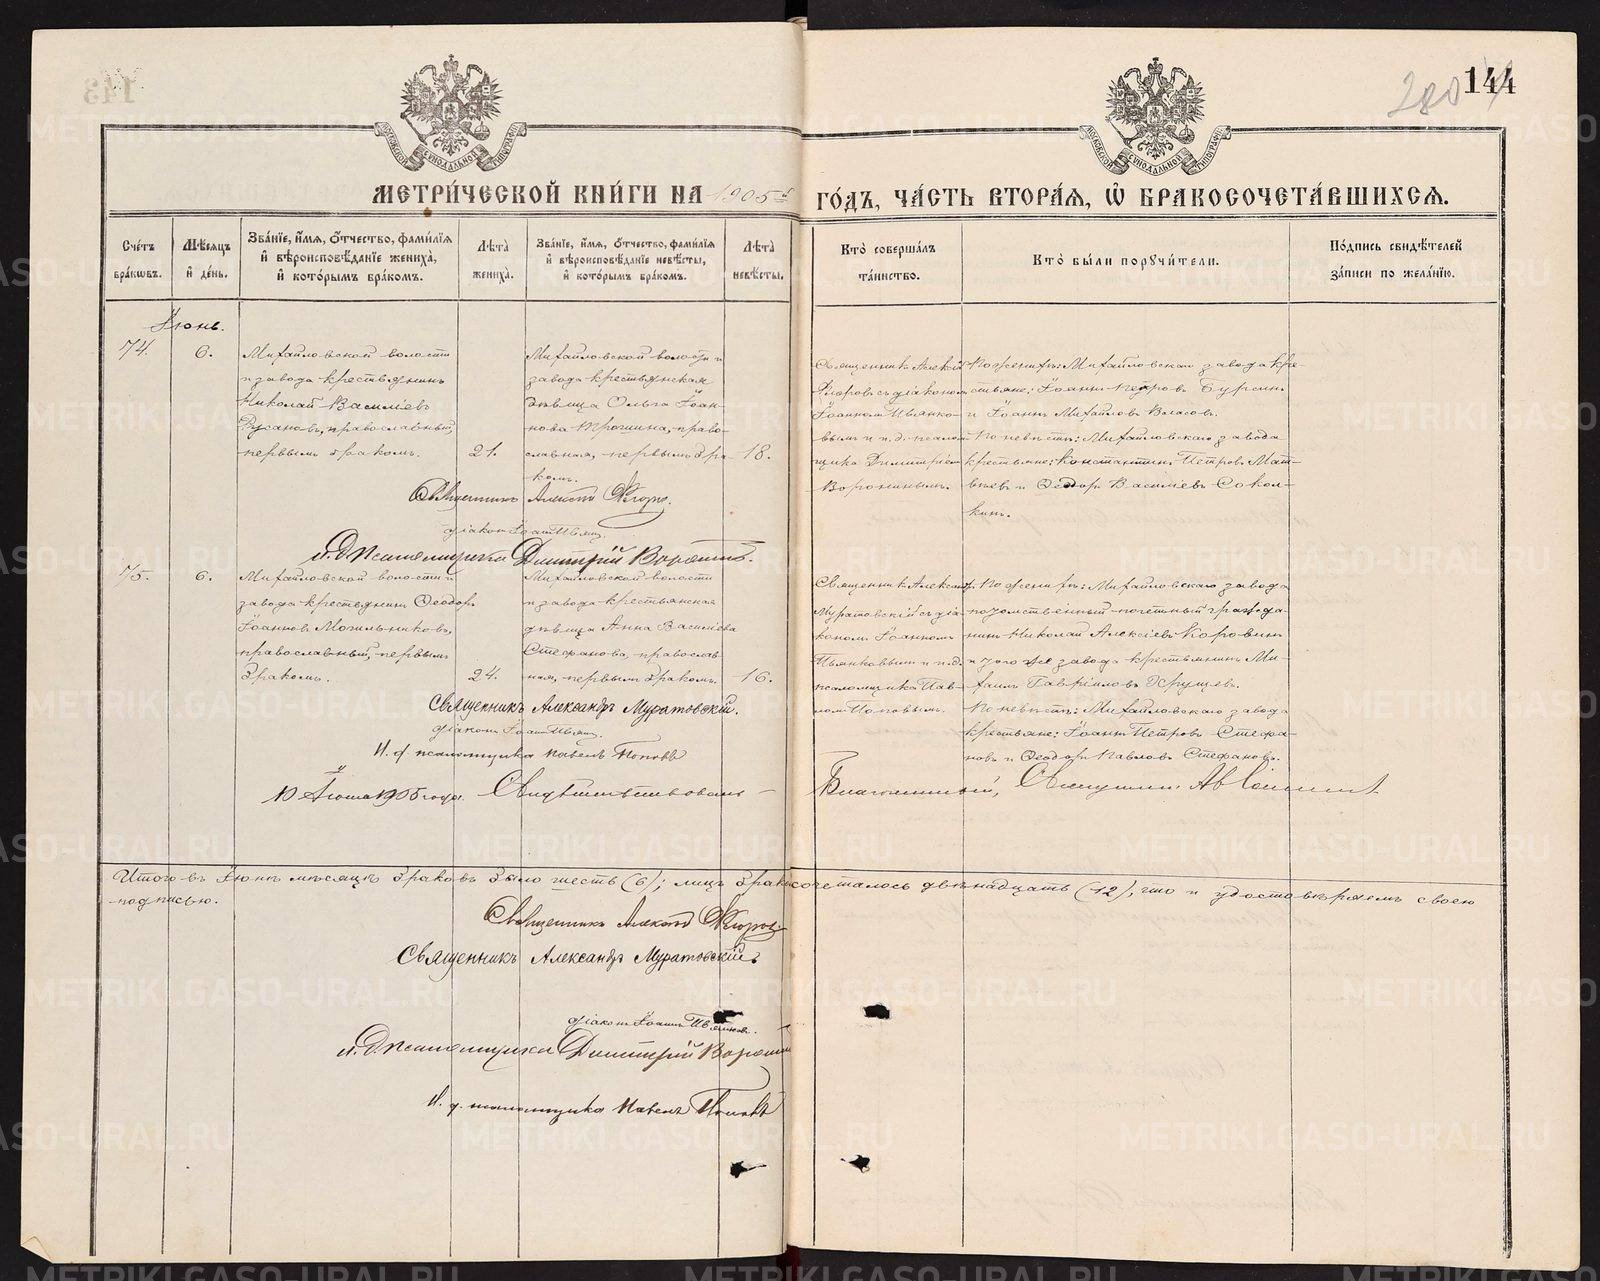 144
280
МОСКОВСКОЙ СѴНОДАЛЬНОЙ ТИПОГРАФІИ
МОСКОВСКОЙ СѴНОДАЛЬНОЙ ТИПОГРАФІИ
МЕТРИ́ЧЕСКОЙ КНИ́ГИ НА 1905й ГО́ДЪ, ЧА́СТЬ ВТОРА́Я, Ѽ БРАКОСОЧЕТА́ВШИХСЯ.
Сче́тъ бра́кωвъ.
Мѣ́сяцъ и҆ де́нь.
Зва́нїе, и҆́мя, ѻ҆́тчество, фами́лїя и҆ вѣроисповѣ́данїе жениха̀, и҆ кото́рымъ бра́комъ.
Лѣ́та жениха̀.
Зва́нїе, и҆́мя, ѻ҆́тчество, фами́лїя и҆ вѣроисповѣ́данїе невѣ́сты, и҆ кото́рымъ бра́комъ.
Лѣ́та невѣ́сты.
Кто̀ соверша́лъ та́инство.
Кто̀ бы́ли порꙋчи́тели.
По́дпись свидѣ́телей за́писи по жела́нїю.
Іюнь.
74.
6.
Михайловской волости
и завода крестьянинъ
Николай Василіевъ
Русановъ, православный,
первымъ бракомъ.
21.
Михайловской волости и
завода крестьянская
дѣвица Ольга Іоан-
нова Трошина, право-
славная, первымъ бра-
комъ.
18.
Священникъ Алексій
Флоровъ съ діакономъ
Іоанномъ Пьянко-
вымъ и и.д. псалом-
щика Димитріемъ
Ворониннымъ.
По женихѣ: Михайловскаго завода кре-
стьяне: Іоаннъ Петровъ Бурсинъ
и Іоаннъ Михайловъ Власовъ.
По невѣстѣ: Михайловскаго завода
крестьяне: Константинъ Петровъ Мат-
вѣевъ и Ѳеодоръ Василіевъ Сокол-
кинъ.
Священникъ Алексій
діаконъ Іоаннъ Пьянк.
и.д. псаломщика Димитрій Воронинъ.
75.
6.
Михайловской волости и
завода крестьянинъ Ѳеодоръ
Іоанновъ Могильниковъ,
православный, первымъ
бракомъ.
24.
Михайловской волости
и завода крестьянская
дѣвица Анна Василіева
Стефанова, православ-
ная, первымъ бракомъ.
16.
Священникъ Александръ
Муратовскій съ діа-
кономъ Іоанномъ
Пьянковымъ и и.д.
псаломщика Пав-
ломъ Поповымъ.
По женихѣ: Михайловскаго завода
потомственный почетный гражда-
нинъ Николай Алексіевъ Коровинъ
и того же завода крестьянинъ Ми-
хаилъ Гавріиловъ Хрущевъ.
По невѣстѣ: Михайловскаго завода
крестьяне: Іоаннъ Петровъ Стефа-
новъ и Ѳеодоръ Павловъ Стефановъ.
Священникъ Александръ Муратовскій.
діаконъ Іоаннъ Пьянк.
И. д. псаломщика Павелъ Поповъ
1905 года. Свидѣтельствовалъ – Благочинный, Священникъ
Итого въ Іюнѣ мѣсяцѣ браковъ было шесть (6); лицъ бракосочеталось двѣнадцать (12), что и удостовѣряемъ своею
подписью.
Священникъ Алексій
Священникъ Александръ Муратовскій.
діаконъ Іоаннъ Пьянковъ.
и.д. псаломщика Димитрій Воронинъ
И. д. псаломщика Павелъ Поповъ
METRIKI.GASO-URAL.RU